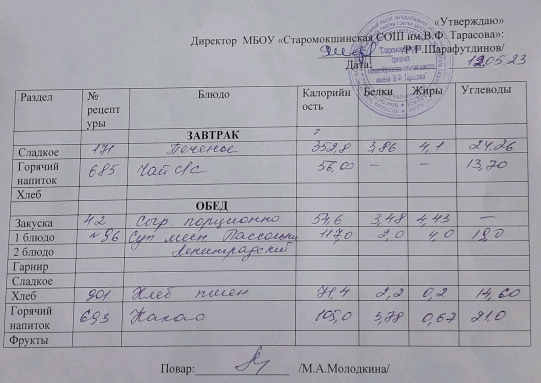 «Утверждаю»
Директор МБОУ «Старомокшинская СОШ им.В.Ф. Тарасова»:
/Р.Г.Шарафутдинов/
Дата: 12.05.23
Раздел № рецептуры Блюдо Калорийность Белки Жиры Углеводы
ЗАВТРАК
Сладкое 171 Печенье 352,8 3,86 4,1 24,26
Горячий напиток 685 Чай с/с 56,00 – – 13,70
Хлеб
ОБЕД
Закуска 42 Сыр порционно 54,6 3,48 4,43 –
1 блюдо №96 Суп Рассольник 117,0 2,0 4,0 19,0
2 блюдо Ленинградский
Гарнир
Сладкое
Хлеб 901 Хлеб пшен 71,4 2,2 0,2 14,60
Горячий напиток 693 Какао 105,0 3,78 0,67 21,0
Фрукты
Повар: /М.А.Молодкина/